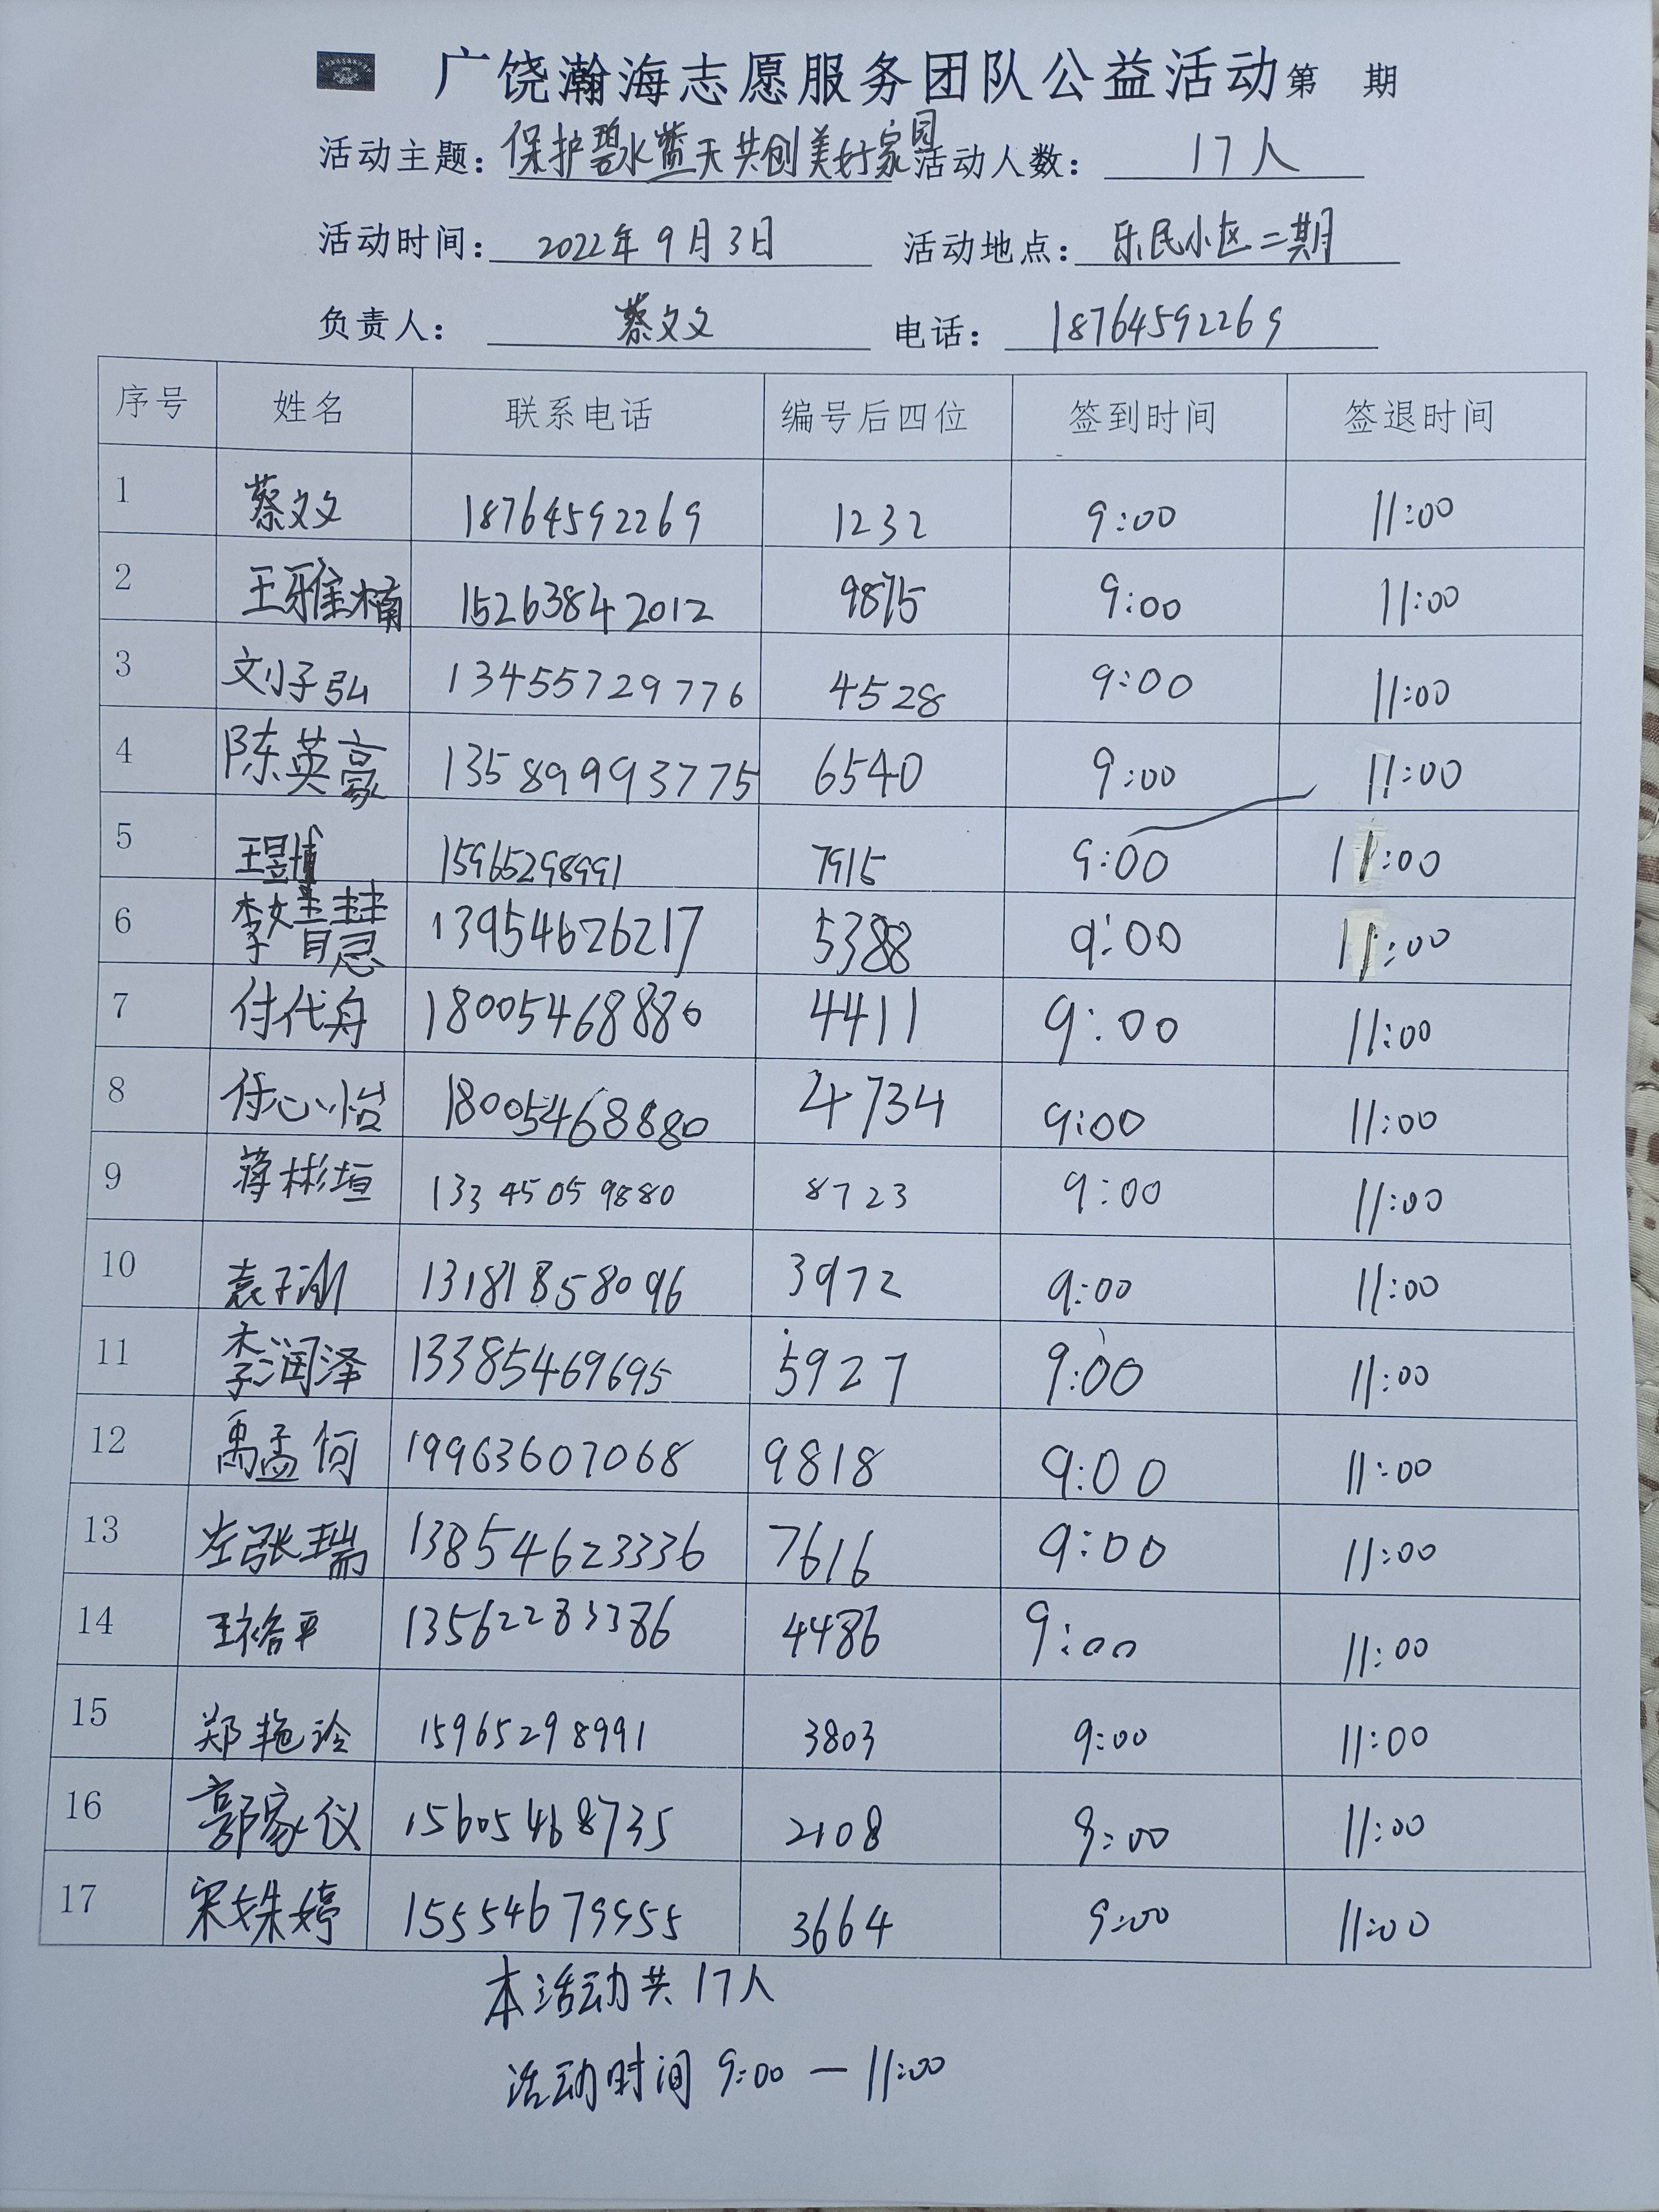 广饶瀚海志愿服务团队公益活动第 期
活动主题：保护碧水蓝天共创美好家园 活动人数：17人
活动时间：2022年9月3日 活动地点：乐民小区二期
负责人：蔡文文 电话：18764592269
序号 姓名 联系电话 编号后四位 签到时间 签退时间
1 蔡文文 18764592269 1232 9:00 11:00
2 王雅楠 15263842012 9875 9:00 11:00
3 刘子弘 13455729776 4528 9:00 11:00
4 陈英豪 13589993775 6540 9:00 11:00
5 王昱博 15965298991 7915 9:00 11:00
6 李婧慧 13954626217 5388 9:00 11:00
7 付代舟 18005468880 4411 9:00 11:00
8 付心怡 18005468880 4734 9:00 11:00
9 蒋彬垣 13345059880 8723 9:00 11:00
10 袁子 13181858096 3972 9:00 11:00
11 李润泽 13385469695 5927 9:00 11:00
12 禹孟何 19963607068 9818 9:00 11:00
13 左张瑞 13854623336 7616 9:00 11:00
14 王裕平 13562283386 4486 9:00 11:00
15 郑艳玲 15965298991 3803 9:00 11:00
16 郭家仪 15605468735 2108 9:00 11:00
17 宋姝婷 15554679555 3664 9:00 11:00
本活动共17人
活动时间 9:00 — 11:00